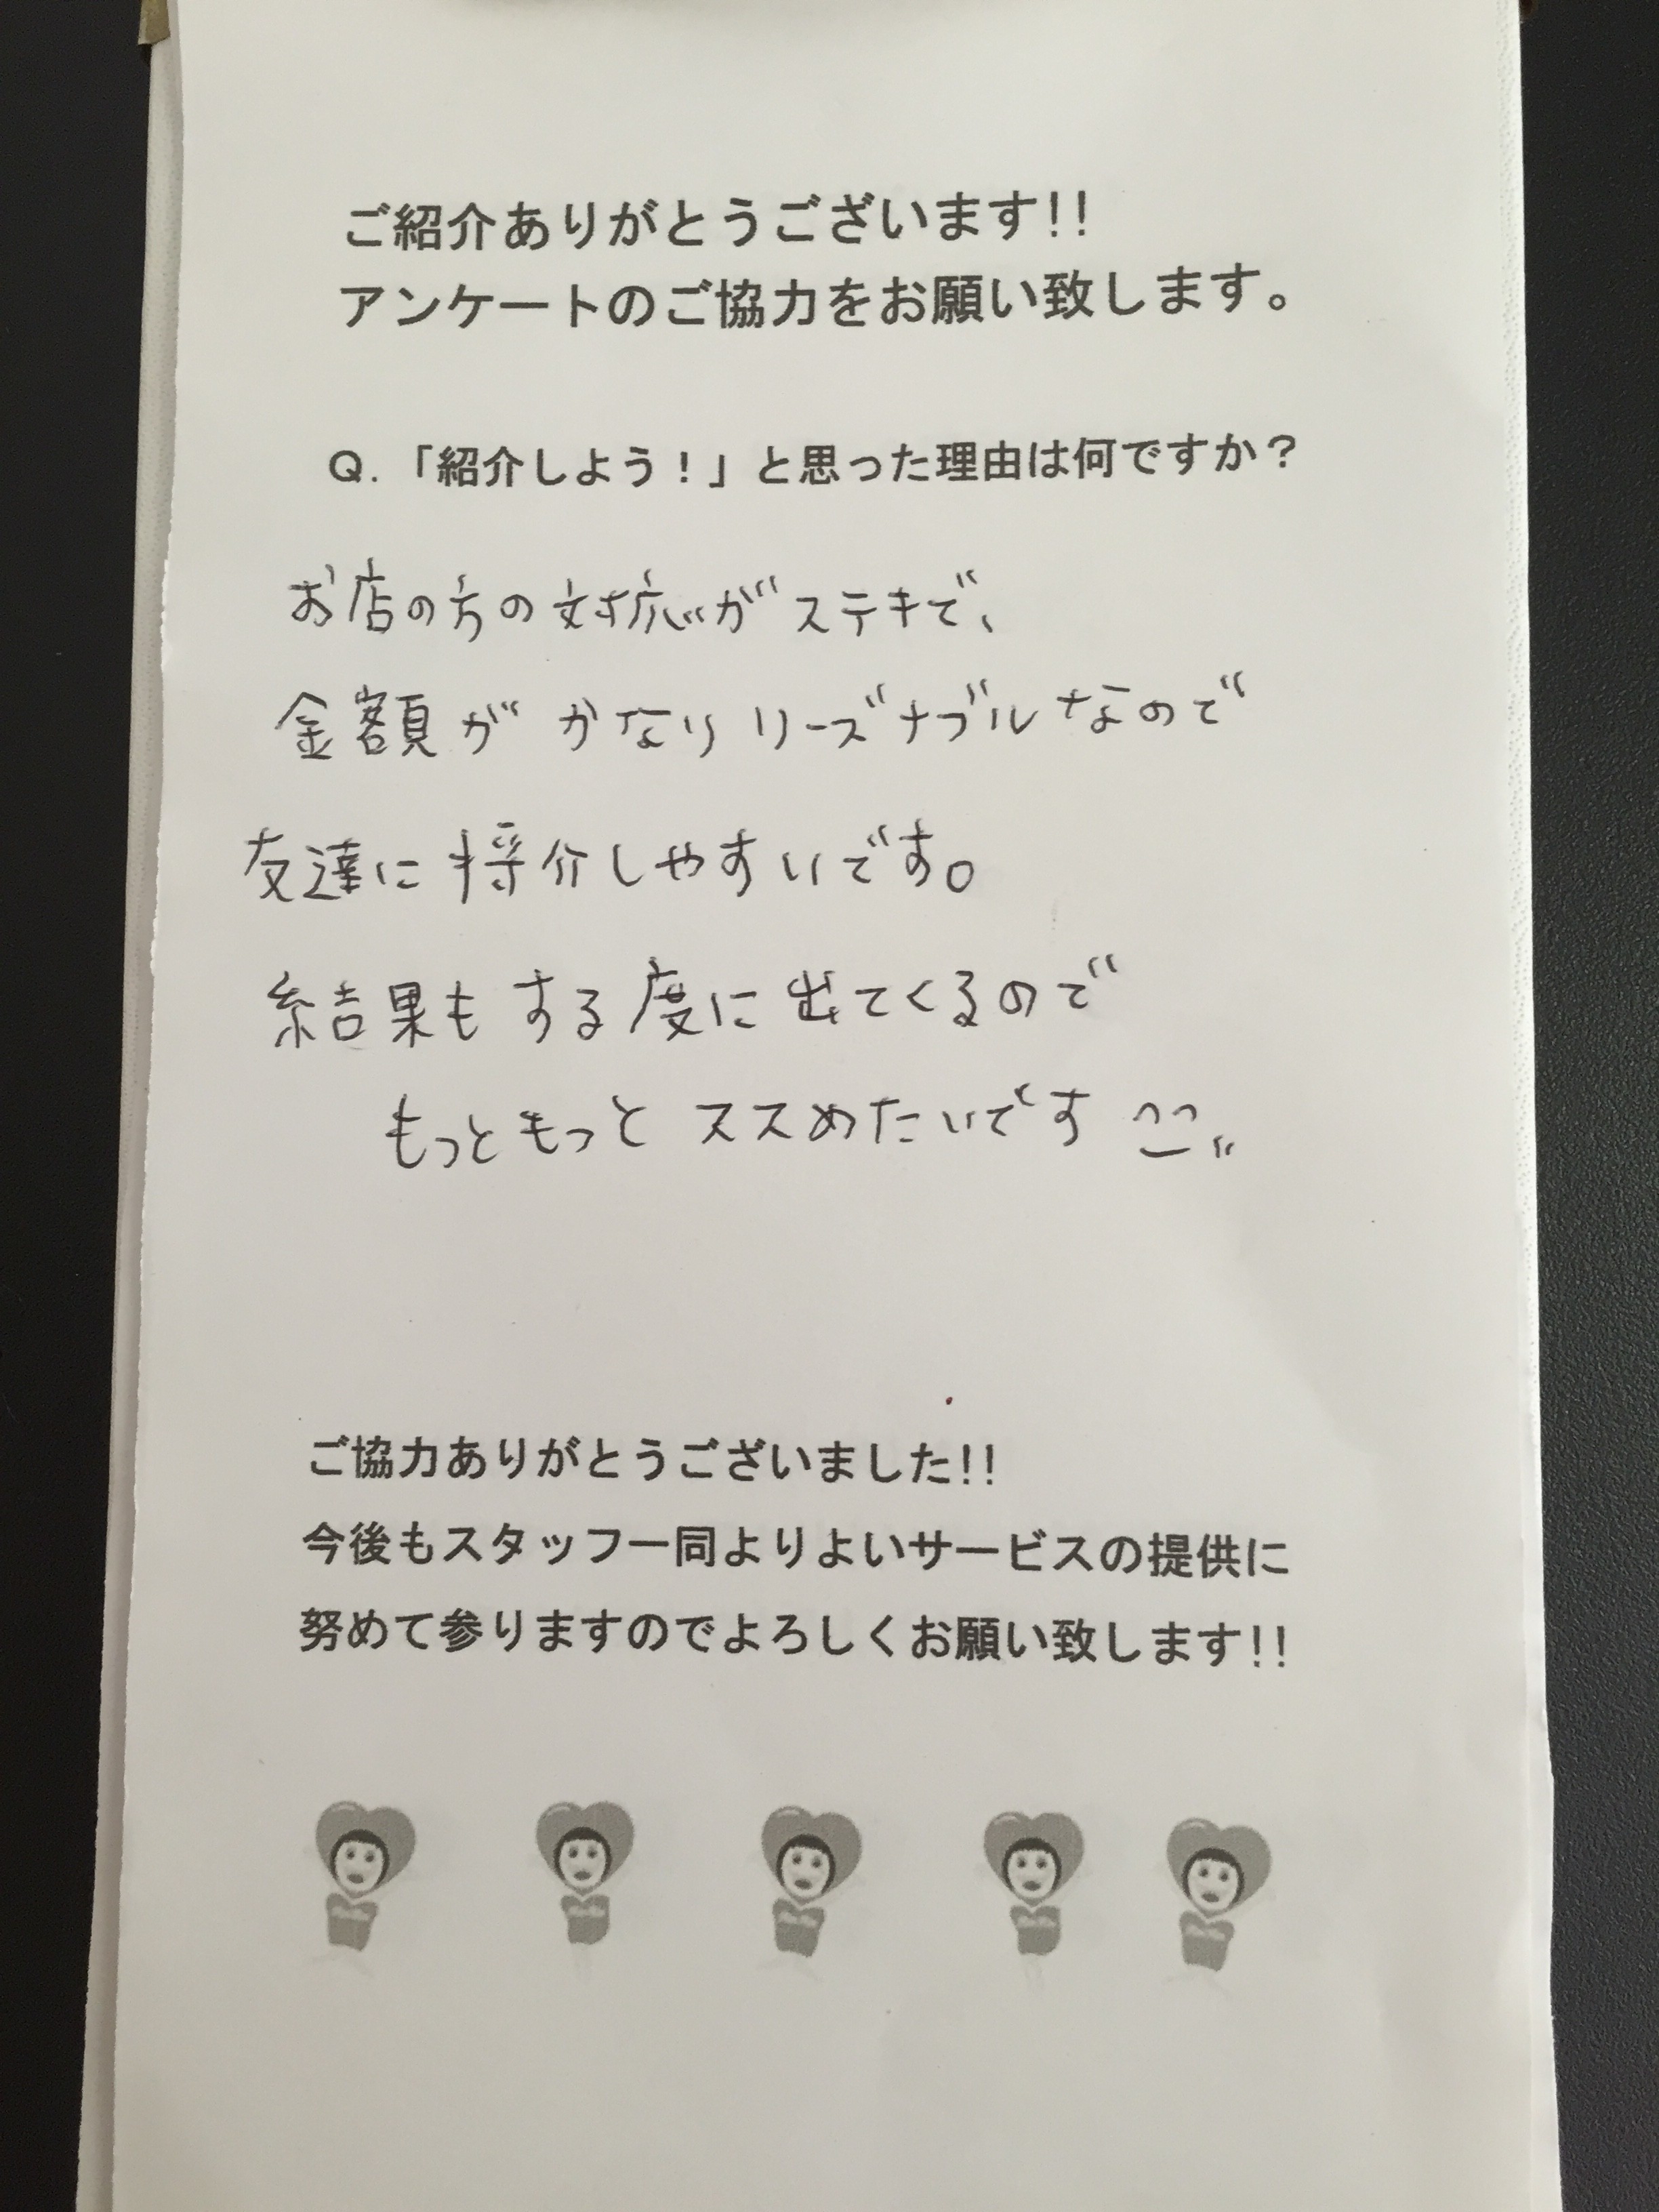 ご紹介ありがとうございます!!
アンケートのご協力をお願い致します。
Q.「紹介しよう!」と思った理由は何ですか?
お店の方の対応がステキで、
金額がかなりリーズナブルなので
友達に招介しやすいです。
結果もする度に出てくるので
もっともっとススめたいです
ご協力ありがとうございました!!
今後もスタッフ一同よりよいサービスの提供に
努めて参りますのでよろしくお願い致します!!